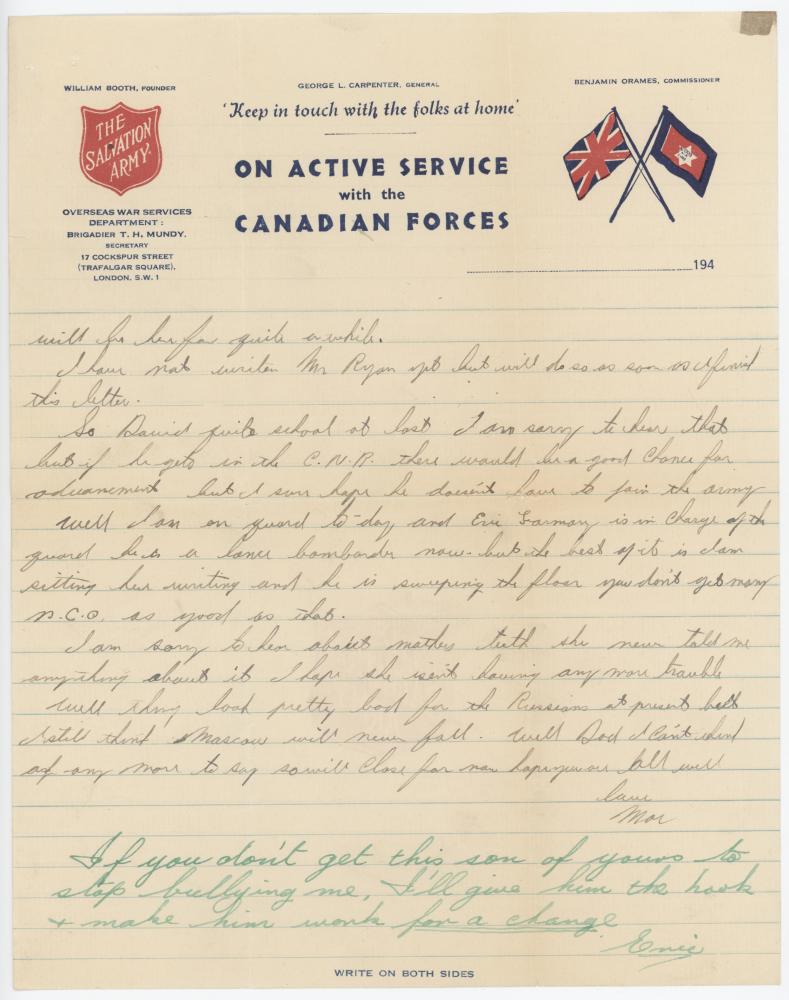 WILLIAM BOOTH, FOUNDER
GEORGE L. CARPENTER, GENERAL
BENJAMIN ORAMES, COMMISSIONER
THE
SALVATION
ARMY
'Keep in touch with the folks at home'
ON ACTIVE SERVICE
with the
CANADIAN FORCES
OVERSEAS WAR SERVICES
DEPARTMENT:
BRIGADIER T. H. MUNDY,
SECRETARY
17 COCKSPUR STREET
(TRAFALGAR SQUARE),
LONDON, S.W.1
194
will be here for quite a while.
I have not writen Mr Ryan yet but will do so as soon as I finish
this letter.
So David quite school at last I am sorry to hear that
but if he gets in the C.N.R. there would be a good Chance for
advancement but I sure hope he doesn't have to join the army
Well I am on guard to-day and Eric Harman is in Charge of the
guard he is a lance bombarder now. but the best of it is I am
sitting here writing and he is sweeping the floor you don't get many
N.C.O. as good as that.
I am sorry to hear about mothers teeth she never told me
anything about it I hope she isen't having any more trouble
Well thing look pretty bad for the Russians at present but
I still think Moscow will never fall. Well Dad I Can't think
of any more to say so will Close for now hope you are all well
love
Mor
If you don't get this son of yours to
stop bullying me, I'll give him the hook
+ make him work for a change
Eric
WRITE ON BOTH SIDES